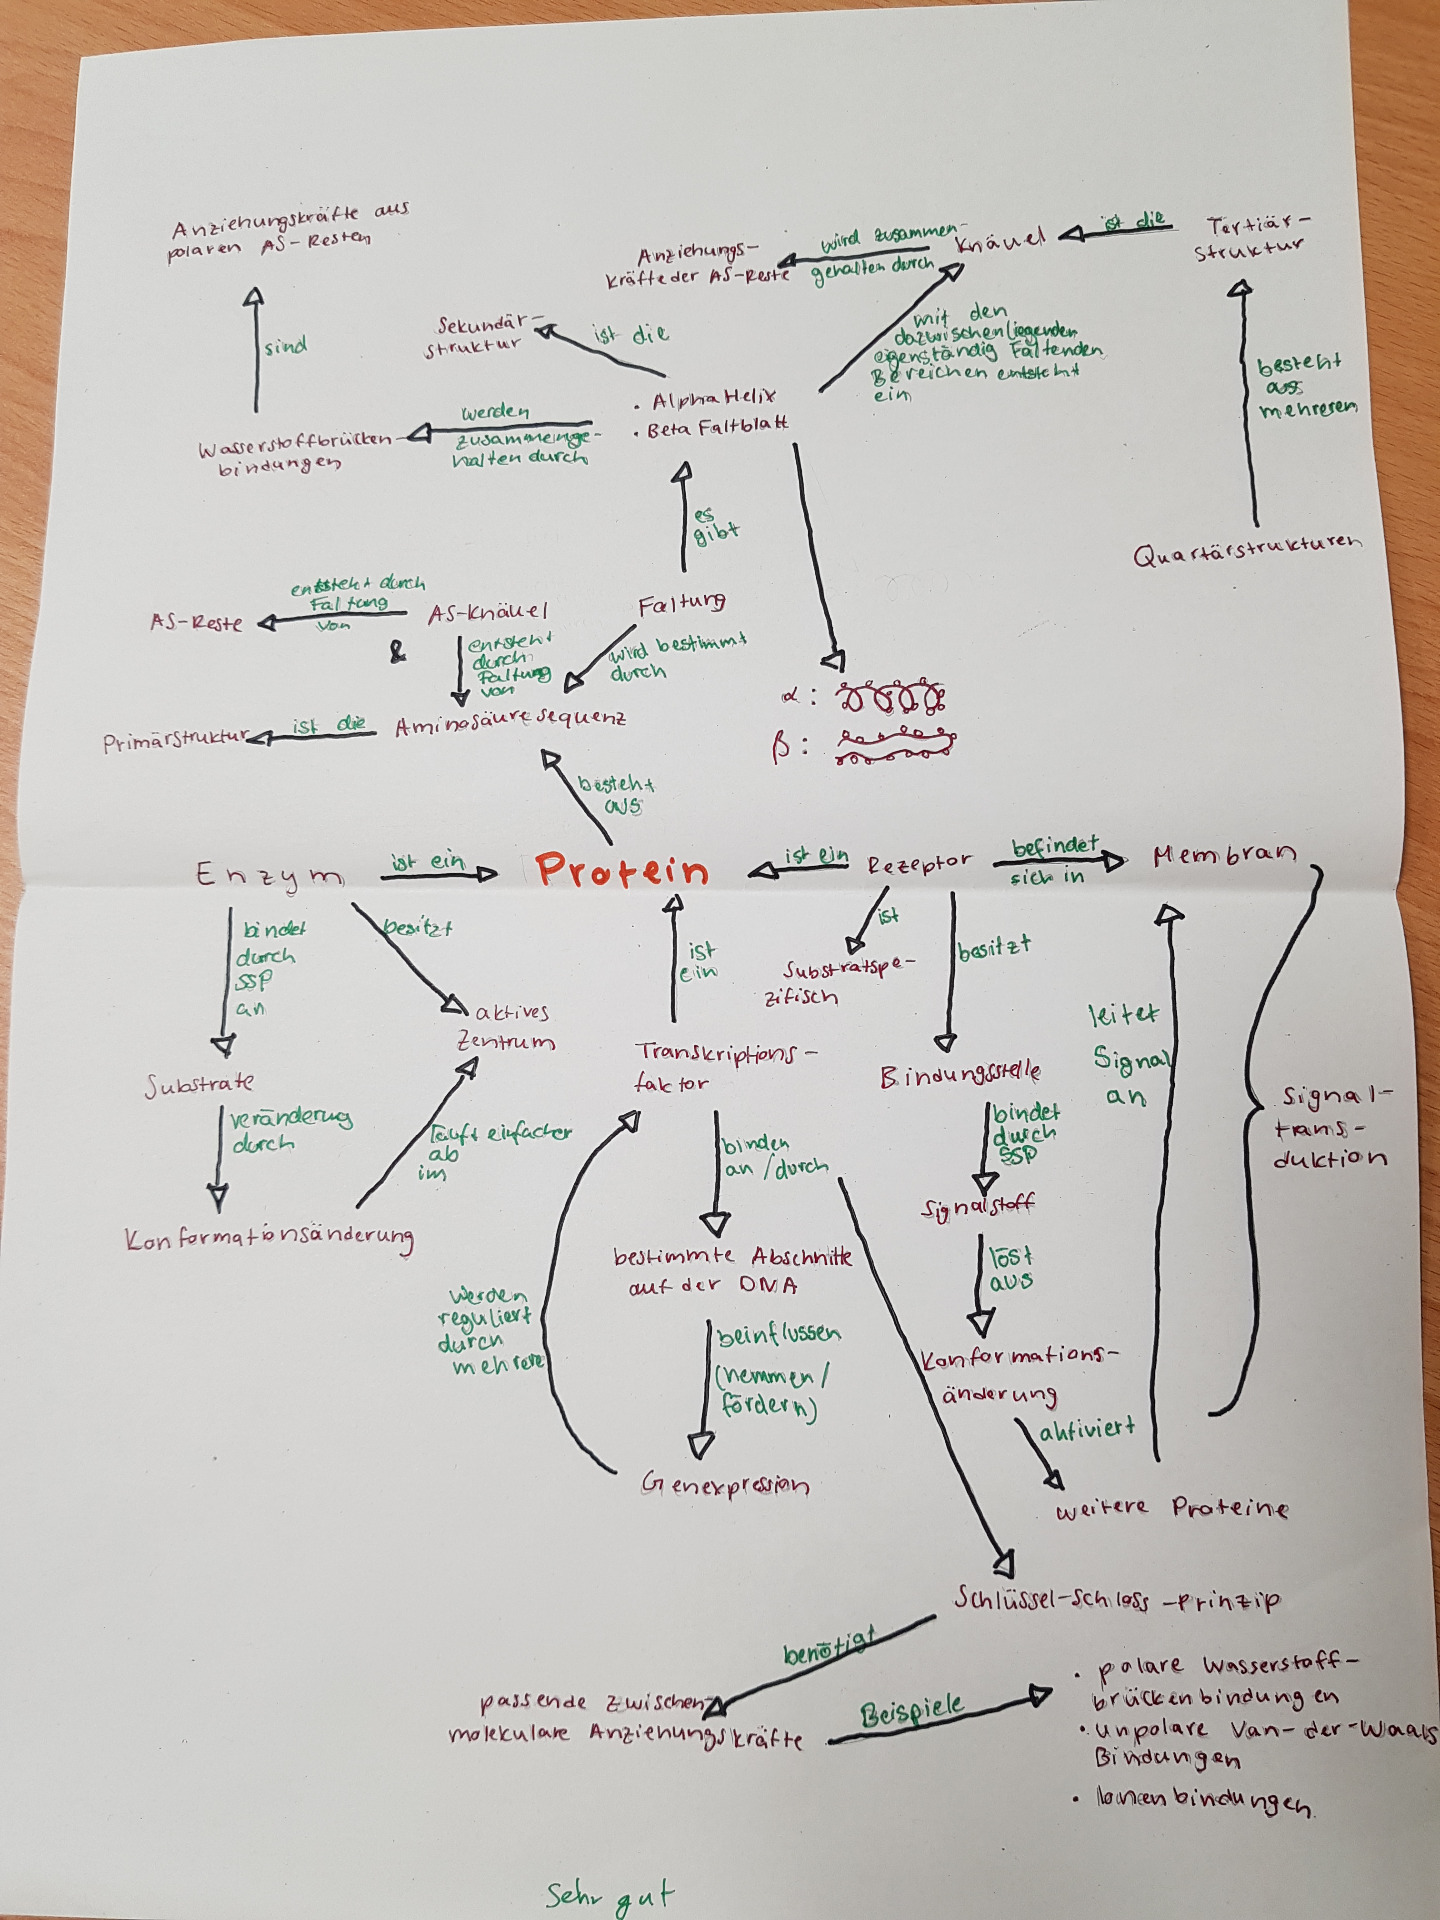 Anziehungskräfte aus
polaren AS-Resten
sind
Wasserstoffbrücken-
bindungen
werden
zusammenge-
halten durch
Sekundär-
struktur
ist die
• Alpha Helix
• Beta Faltblatt
Anziehungs-
kräfte der AS-Reste
wird zusammen-
gehalten durch
Knäuel
ist die
Tertiär-
struktur
mit den
dazwischenliegenden
eigenständig Faltenden
Bereichen entsteht
ein
besteht
aus
mehreren
Quartärstrukturen
es
gibt
Faltung
wird bestimmt
durch
AS-Reste
entsteht durch
Faltung
von
AS-Knäuel
&
entsteht
durch
Faltung
von
Primärstruktur
ist die
Aminosäuresequenz
α :
β :
besteht
aus
Enzym
ist ein
Protein
ist ein
Rezeptor
befindet
sich in
Membran
bindet
durch
SSP
an
besitzt
aktives
Zentrum
Substrate
veränderug
durch
Konformationsänderung
läuft einfacher
ab
im
ist
ein
Transkriptions-
faktor
binden
an/durch
bestimmte Abschnitte
auf der DNA
beinflussen
(hemmen/
fördern)
Genexpression
werden
reguliert
durch
mehrere
ist
Substratspe-
zifisch
besitzt
Bindungsstelle
bindet
durch
SSP
Signalstoff
löst
aus
Konformations-
änderung
aktiviert
weitere Proteine
leitet
Signal
an
Signal-
trans-
duktion
Schlüssel-Schloss-Prinzip
benötigt
passende zwischen
molekulare Anziehungskräfte
Beispiele
• polare Wasserstoff-
brückenbindungen
• unpolare Van-der-Waals
Bindungen
• Ionenbindungen
Sehr gut